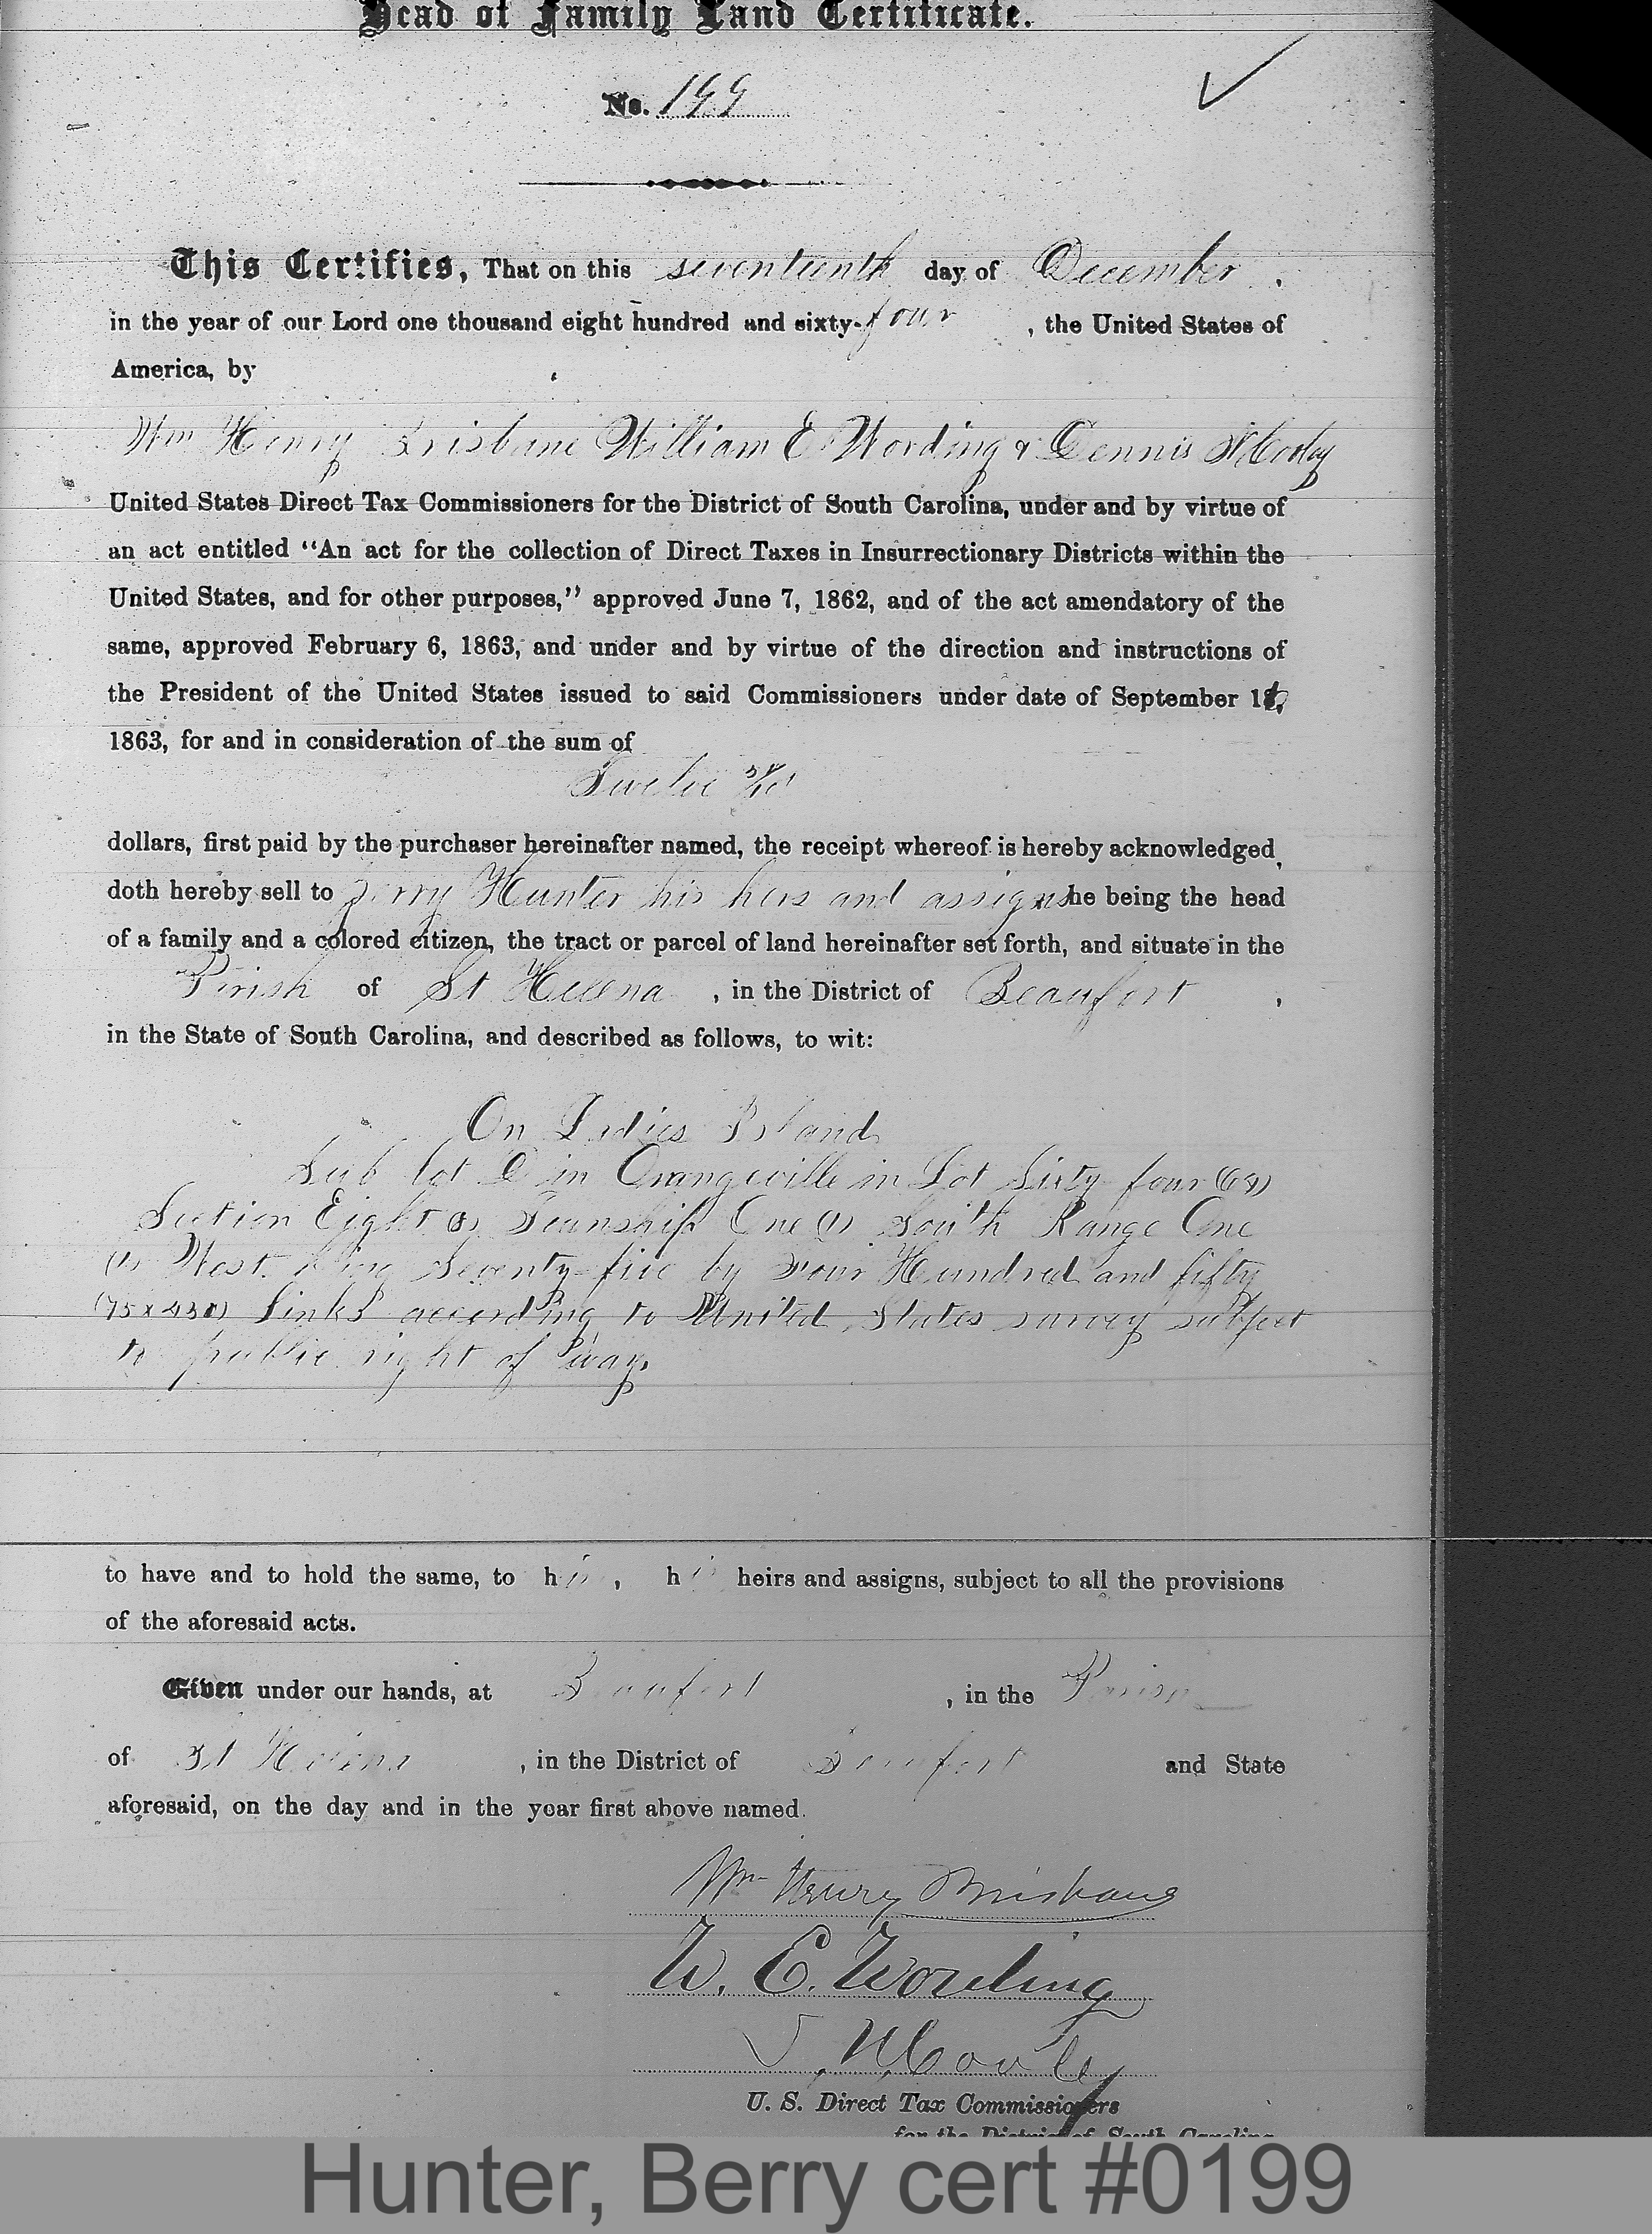 Head of Family Land Certificate.
No. 199
This Certifies, That on this seventeenth day of December,
in the year of our Lord one thousand eight hundred and sixty-four, the United States of
America, by
Wm Henry Brisbane William E Wording & Dennis N Cooley
United States Direct Tax Commissioners for the District of South Carolina, under and by virtue of
an act entitled “An act for the collection of Direct Taxes in Insurrectionary Districts within the
United States, and for other purposes,” approved June 7, 1862, and of the act amendatory of the
same, approved February 6, 1863, and under and by virtue of the direction and instructions of
the President of the United States issued to said Commissioners under date of September 16,
1863, for and in consideration of the sum of
Twelve
dollars, first paid by the purchaser hereinafter named, the receipt whereof is hereby acknowledged,
doth hereby sell to Berry Hunter his heirs and assigns he being the head
of a family and a colored citizen, the tract or parcel of land hereinafter set forth, and situate in the
Parish of St Helena, in the District of Beaufort,
in the State of South Carolina, and described as follows, to wit:
On Ladies Island
Sub lot in Orangeville in Lot Sixty four (64)
Section Eight (8) Township One (1) South Range One
(1) West. being Seventy-five by Four Hundred and fifty
(75 x 450) links according to United States survey subject
to public right of way.
to have and to hold the same, to his, his heirs and assigns, subject to all the provisions
of the aforesaid acts.
Given under our hands, at Beaufort, in the Parish
of St Helena, in the District of Beaufort and State
aforesaid, on the day and in the year first above named.
Wm Henry Brisbane
W. E. Wording
D. N. Cooley
U. S. Direct Tax Commissioners
for the District of South Carolina
Hunter, Berry cert #0199